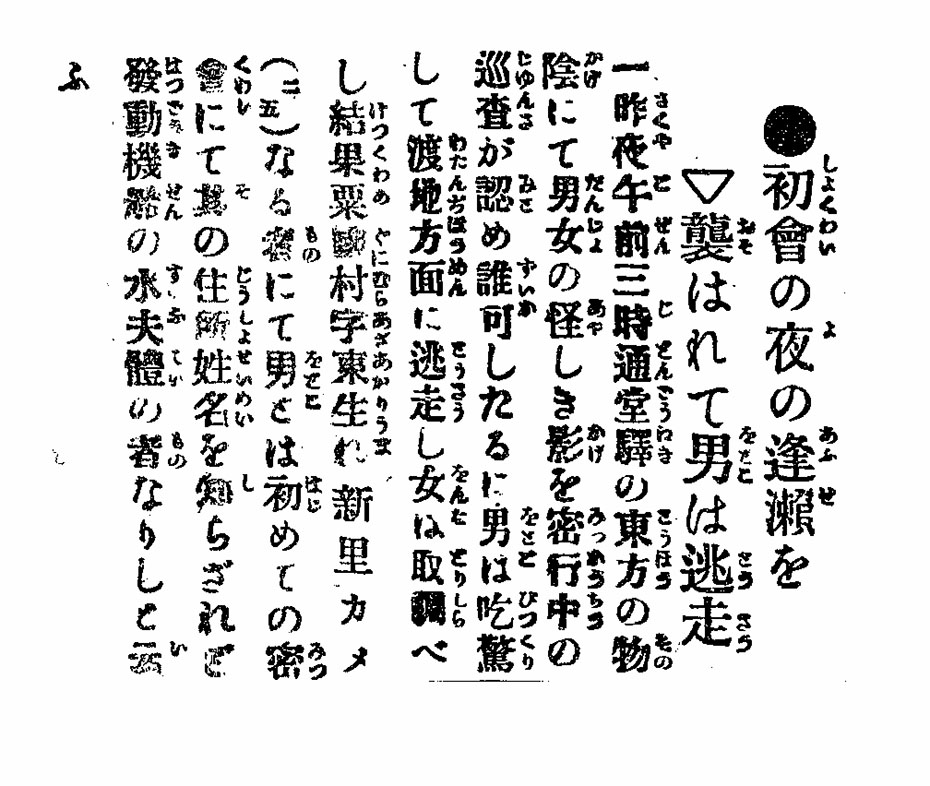 ●初會の夜の逢瀬を
▽襲はれて男は逃走
一昨夜午前三時通堂驛の東方の物
陰にて男女の怪しき影を密行中の
巡査が認め誰可したるに男は吃驚
して渡地方面に逃走し女は取調べ
し結果粟國村字東生れ新里カメ
(二五)なる者にて男とは初めての密
會にて其の住所姓名を知らざれど
發動機船の水夫體の者なりしと云
ふ